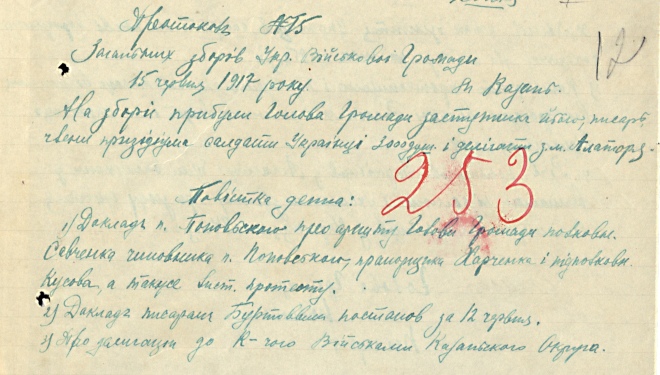 Протоколъ №5
12
Загальних зборів Укр. Військової Громади
15 червня 1917 року м Казань.
На зборі прибули Голова Громади заступники його, писарь,
члени президіума салдати Українці і делегати з м. Алаторя.
253
Повістка денна:
1) Докладъ п. Поповського про Голови Громади полковн.
Севченка чиновника п. Поповського, прапорщика Харченка і підполковн.
Кусова, а такуєе протесту.
2) Докладъ писаря постанов за 12 червня.
3) Про делигаціи до К-чого Військами Казанського Округа.